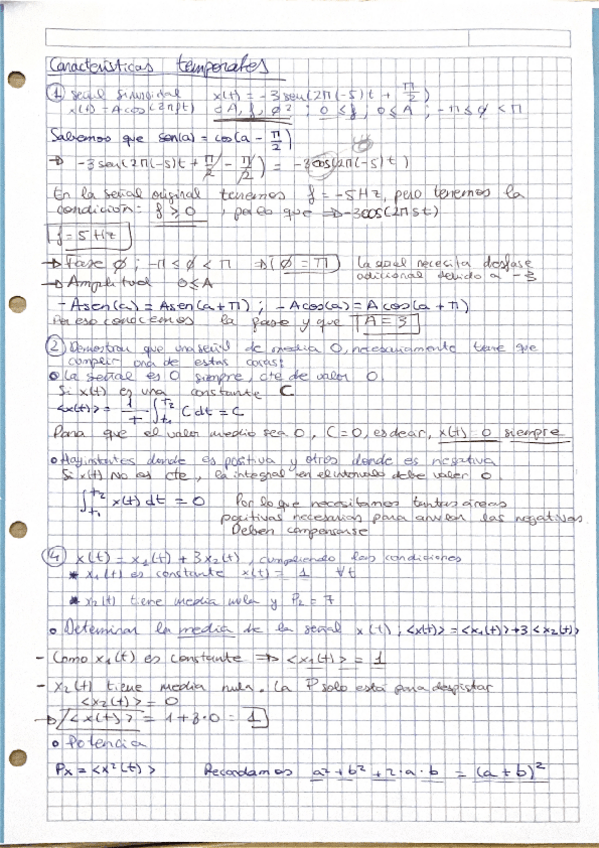 Características temporales
① señal sinusoidal x(t) = -3 sen(2π(-5)t + π/2)
x(t) = A cos(2πft) ¿A, f, ø? ; 0 ≤ f ; 0 ≤ A ; -π ≤ ø < π
Sabemos que sen(a) = cos(a - π/2)
→ -3 sen(2π(-5)t + π/2 - π/2) = -3cos(2π(-5)t)
En la señal original tenemos f = -5Hz, pero tenemos la
condición: f ≥ 0 , por lo que ⇒ -3cos(2π5t)
f = 5Hz
→ Fase ø ; -π ≤ ø < π ⇒ (ø = π) La señal necesita desfase
adicional debido a -3
→ Amplitud 0 ≤ A
-Asen(a) = Asen(a+π) ; -Acos(a) = A cos(a+π)
Por eso conocemos la fase y que A = 3
② Demostrar que una señal de media 0, necesariamente tiene que
cumplir una de estas caract
• La señal es 0 siempre, cte de valor 0
Si x(t) es una constante C
<x(t)> = 1/T ∫t₁ t₂ C dt = C
Para que el valor medio sea 0, C = 0, es decir, x(t) = 0 siempre
• Hay instantes donde es positiva y otros donde es negativa
Si x(t) No es cte, la integral en el intervalo debe valer 0
∫t₁ t₂ x(t) dt = 0 Por lo que necesitamos tantas áreas
positivas necesarias para anular las negativas
Deben compensarse
④ x(t) = x₁(t) + 3x₂(t), cumpliendo las condiciones
* x₁(t) es constante x(t) = 1 ∀t
* x₂(t) tiene media nula y P₂ = 7
• Determinar la media de la señal x(t) ; <x(t)> = <x₁(t)> + 3 <x₂(t)>
- Como x₁(t) es constante ⇒ <x₁(t)> = 1
- x₂(t) tiene media nula. La P solo está para despistar
<x₂(t)> = 0
→ <x(t)> = 1 + 3·0 = 1
• Potencia
Px = <x²(t)> Recordamos a² + b² + 2·a·b = (a + b)²